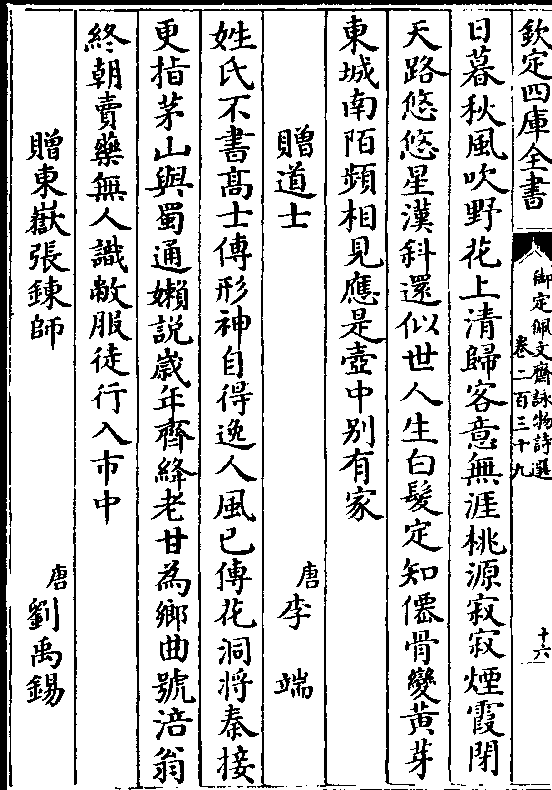 欽定四庫全書
御定佩文齋詠物詩選
卷二百三十九
十六
日暮秋風吹野花上清歸客意無涯桃源寂寂煙霞閉
天路悠悠星漢斜還似世人生白髮定知僊骨變黃芽
東城南陌頻相見應是壺中别有家
贈道士
唐李端
姓氏不書高士傳形神自得逸人風已傳花洞將秦接
更指茅山與蜀通嬾説歲年齊絳老甘為鄉曲號涪翁
終朝賣藥無人識敝服徒行入市中
贈東嶽張鍊師
唐劉禹錫